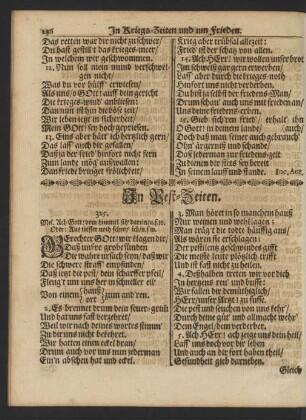 296 In Kriegs-Zeiten und um Frieden.
Das retten war dir nicht zu schwer/
Du hast gestillt das krieges-meer/
In welchem wir geschwommen.
12. Nun soll mein mund verschweigen nicht/
Was du vor hülff' erwiesen/
Als uns/ o GOtt/ auff dein gericht
Die krieges-wind' anbliesen:
Dann nun ist hin die böse zeit/
Wir leben jetzt in sicherheit/
Mein GOtt/ sey hoch gepriesen.
13. Eins aber bätt' ich herzlich gern/
Das laß' auch dir gefallen/
Daß ja der fried' hinfort nicht fern
Zum lande mög' außwallen/
Dañ friede bringet frölichkeit/
Krieg aber trübsal allezeit:
Fried ist der schatz von allen.
14. Ach HErr! wir wollen unser brot
Im schweiß gar gern erwerben/
Laß' aber durch die krieges-noth
Hinfort uns nicht verderben.
Drum schau' auch uns mit frieden an/
Daß jederman dich loben kan/
Und deine friedens-erben.
15. Gieb sich rein fried/ erhalt ihn
O Gott! in deinem lande/ (auch/
Doch daß man seiner auch gebrauch'
Ohn' ärgerniß und schande/
Daß jederman zu fried dein-geit
Zu dienen dir stets sey bereit
In seinem lauff und stande.
In Pest-Zeiten.
Mel. Ach Gott/ vom himmel sih' darein/
Oder: Aus tieffer noth schrey' ich
GErechter Gott/ wir klagen dir/
Daß unsre große sünden
Die wahre ursach seyn/ daß wir
Die schwere straff' empfinden:
Dach jetzt die pest/ dein scharffer pfeil/
Fleugt um uns her in schneller eil'
Von einem hauß'/ort zum and'ren.
2. Es brennet drum dein feuer-grim̃
Und hat uns fast verzehret/
Weil wir nach deines wortes stimm'
Zu dir uns nicht bekehret:
Wir hatten einen ekel dran/
Drum auch vor uns nun jederman
Ein'n abscheu hat und ekel.
3. Man höret in so manchem hauß
Nur weinen und wehklagen:
Man träg't die todte häuffig aus/
Als wären sie erschlagen:
Der pestilentz geschwindes gifft
Die meiste leute plötzlich trifft
Und läst sich nicht zu heilen.
4. Deßhalben treten wir vor dich
In hertzens reu' und busse:
Wir fallen dir demüthiglich/
HErr/ unser Artzt! zu fusse.
Die pest und seuche von uns kehr/
Durch deine güt' und allmacht wehr'
Dem Engel/ dem verderber.
5. Ach HErr! ach zeige uns dein heil/
Laß' uns doch vor dir leben
Und auch an dir fort haben theil/
Gesundheit gieb darneben.
Gleich